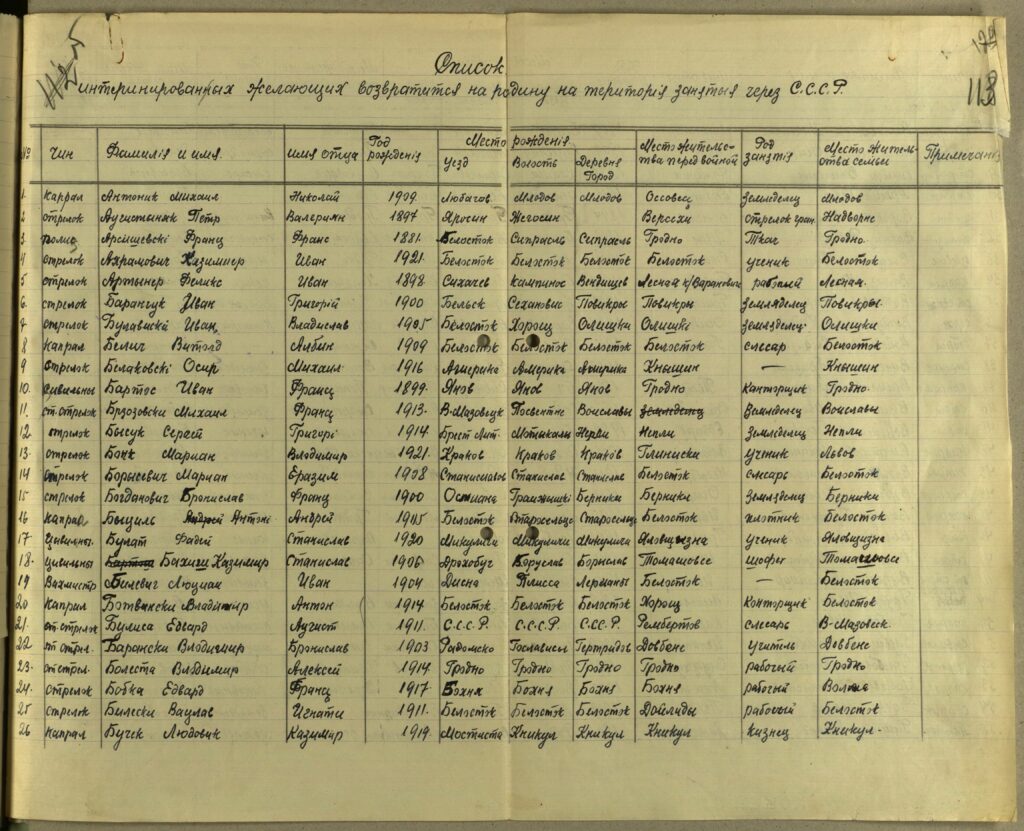 179
112
113
Список
интеринированных желающих возвратится на родину на територія занятыя через С.С.С.Р.
№ Чин Фамилія и имя. Имя отца Год рожденія Место рожденія Место жительства перед войной Род занятія Место жительства семьи Примечаніе
Уезд Волость Деревня Город
1. каррал Антоник Михаил Николай 1909. Любачов Млодов Млодов Оссовец земледелец Млодов
2 стрелок Аугистыняк Петр Валериян 1897 Яросин Жегосин Версехи Стрелок гран. Надворне
3. Арсишевскі Франц Франс 1881. Белосток Супрасль Супрасль Гродно Ткач Гродно.
4 стрелок Ахрамович Казимир Иван 1921. Белосток Белосток Белосток Белосток ученик Белосток
5 стрелок Артынер Феликс Иван 1898 Сихачев Кампинос Вендишев Лесная к/Баранович рабочый Лесная.
6. стрелок Баранчук Иван Григорій 1900 Бельск Сехановис Повикры Повикры земляделец Повикры.
7. стрелок Булавискі Иван Владислав 1905 Белосток Хорощ Олишки Олишкі земляделец Олишки
8 капрал Белич Витолд Албин 1909 Белосток Белосток Белосток Белосток слесар Белосток
9 стрелок Белаковскі Осип Михаил 1916 Америка Америка Америка Кнышин — Кнышин
10. цивильны Бартос Иван Франц 1899. Янов Янов Янов Гродно Канторщик Гродно.
11. ст. стрелок Брзозовски Михаил Франц 1913. В-Мазовецк Посвентне Воиславы земледелец Земляделец Воиславы
12 стрелок Бысук Григорі 1914. Брест Лит. Мотыкалы Непли Земледелец Непли
13. стрелок Бонк Мариан Владимир 1921. Краков Краков Краков Глиниски ученик Львов
14 стрелок Борисевич Мариан Еразим 1908 Станиславов Станислав Станислав Белосток слесарь Белосток
15 стрелок Богданович Бронислав Франц 1900 Ошмяна Граижышкі Берники Берники Земляделец Берники
16 капрал Быциль Андрей Антоні Андрей 1915 Белосток Старосельце Старосельце Белосток плотник Белосток
17 Цивильны. Булат Фадей Станислав 1920 Микуличи Микуличи Микуличи Яловщызна ученик Яловщизна
18. цивильны Бахиш Казимир Станислав 1906 Дрохобуч Боруслав Борислав Томашовсе шофер Томашовсе
19 Вахмистр Билевич Люциан Иван 1904 Дисна Плисса Белосток — Белосток
20 капрал Ботвински Владимир Антон 1914 Белосток Белосток Белосток Хорощ Конторщик Белосток
21. ст. стрелок Булиса Едвард Аугист 1911. С.С.С.Р. С.С.С.Р. С.С.С.Р. Рембертов слесарь В-Мазовеск.
22 ст. стрел. Барански Владимир Бронислав 1903 Радомско Гослависы Гертридов Довбене учитель Довбене
23. ст. стрел. Болеста Владимир Алексей 1914 Гродно Гродно Гродно Гродно рабочый Гродно
24. стрелок Бобка Едвард Франц 1917 Бохня Бохня Бохня Бохня рабочый
25 стрелок Билески Вацлав Игнати 1911. Белосток Белосток Белосток Дойлиды рабочый Белосток
26 капрал Бучек Людовик Казимир 1919. Мостиста Кникул Кникул Кникул кизнец Кникул.